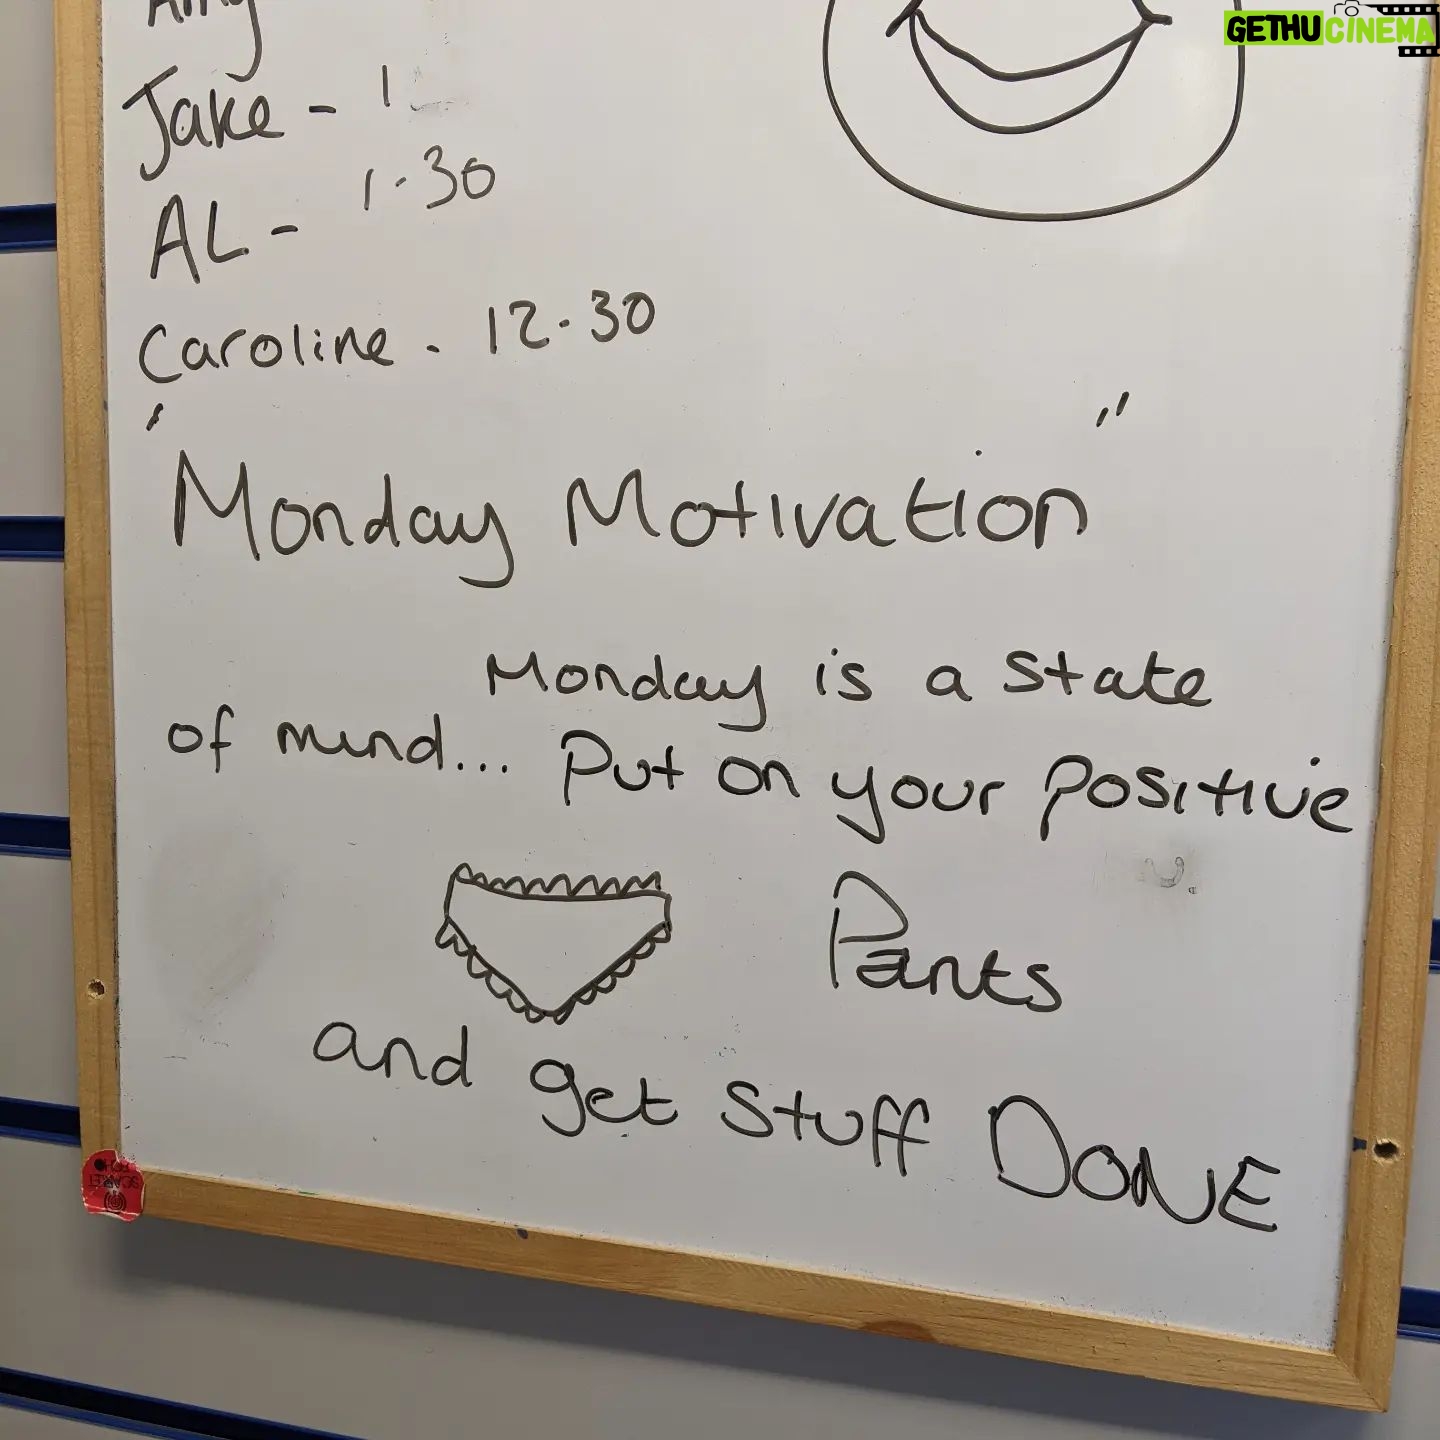 GETHUCINEMA
Amy
Jake - 1
AL - 1.30
Caroline - 12.30
"Monday Motivation"
Monday is a state
of mind... Put on your positive
Pants
and get stuff DONE
SCARLET
ECHO